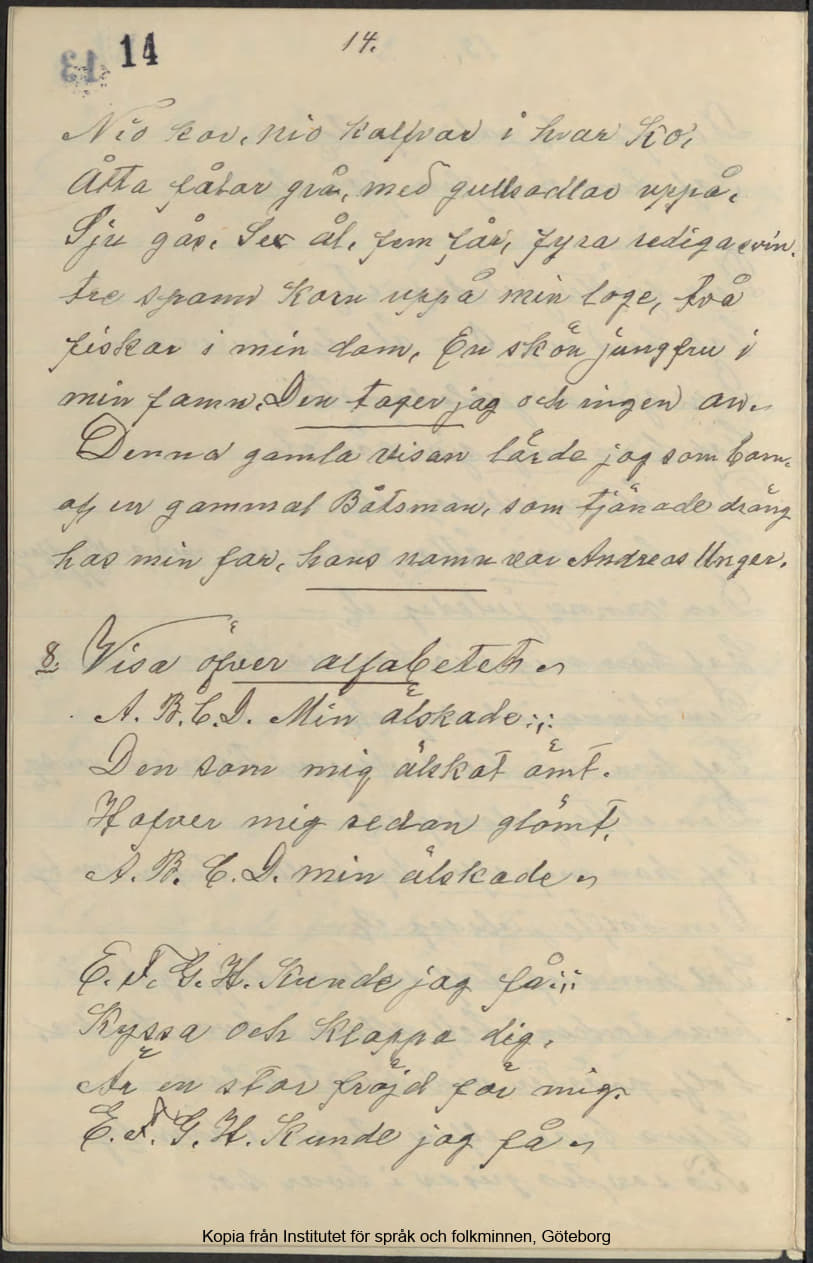 13 14
14.
Nio kor, nio kalfvar i hvar ko,
Åtta fålar grå, med gullsadlar uppå,
Sju gås. Sex ål, fem får, fyra rediga svin.
tre spann korn uppå min loge, två
fiskar i min dam, En skön jungfru i
min famn. Den tager jag och ingen an.
Denna gamla visan lärde jag som barn,
af en gammal Båtsman, som tjänade dräng
hos min far, hans namn var Andreas Unger.
8. Visa öfver alfabetet
A. B. C. D. Min älskade :,:
Den som mig älskat ömt.
Hafver mig redan glömt,
A. B. C. D. min älskade
E. F. G. H. Kunde jag få :,:
Kyssa och klappa dig,
Är en stor fröjd för mig.
E. F. G. H. Kunde jag få
Kopia från Institutet för språk och folkminnen, Göteborg